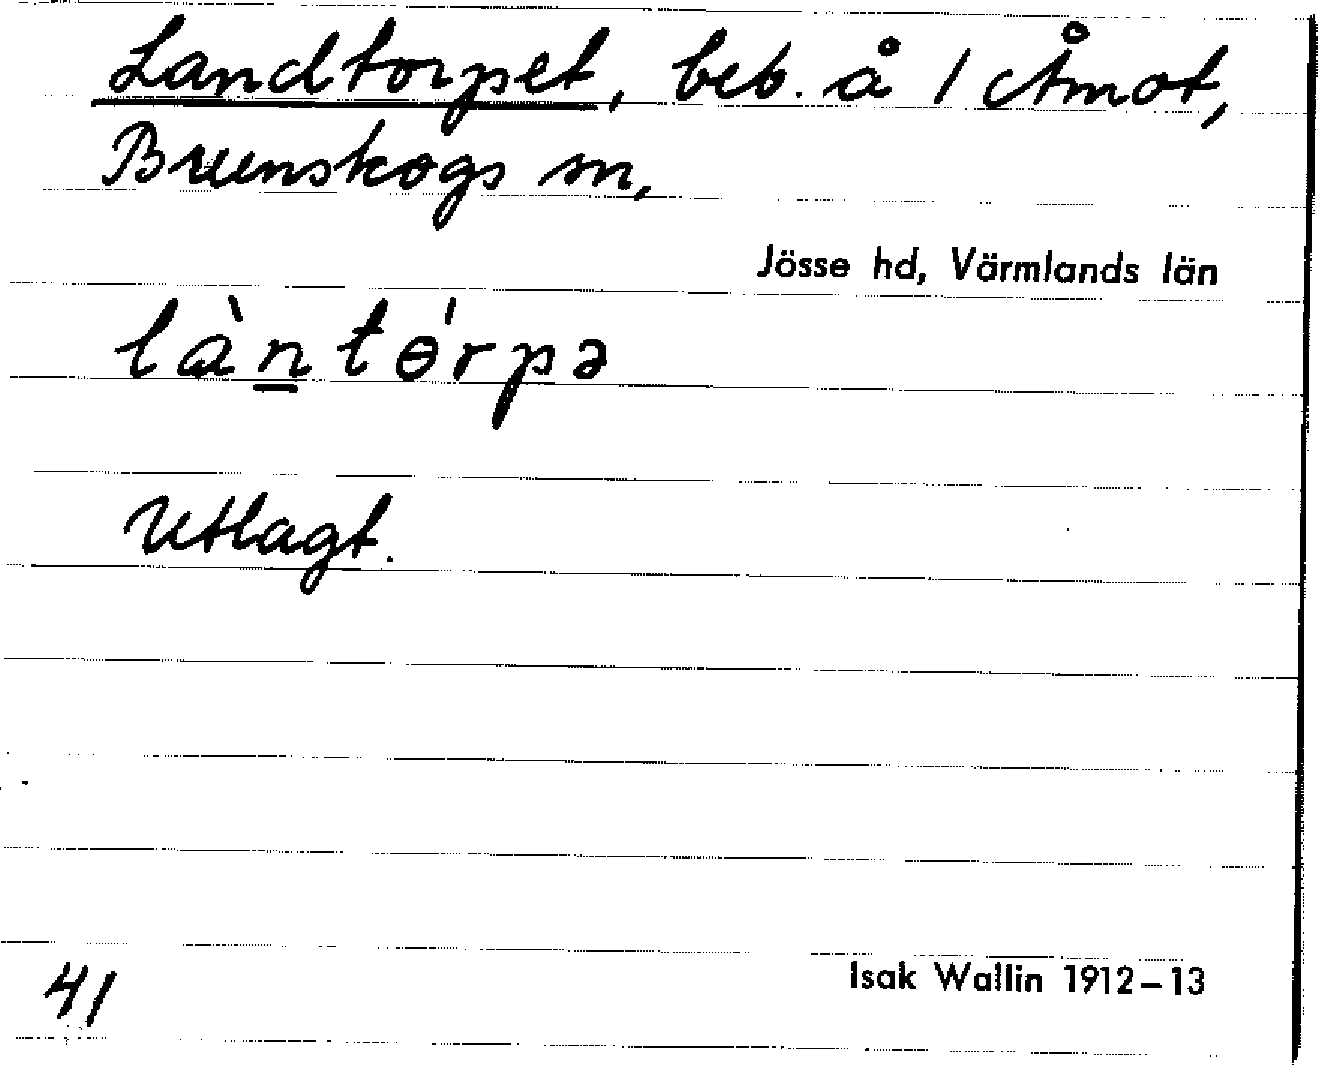 Landtorpet, beb. å 1 Åmot,
Brunskogs sn,
Jösse hd, Värmlands län
làntɵ́rpə
Utlagt.
41
Isak Wallin 1912–13